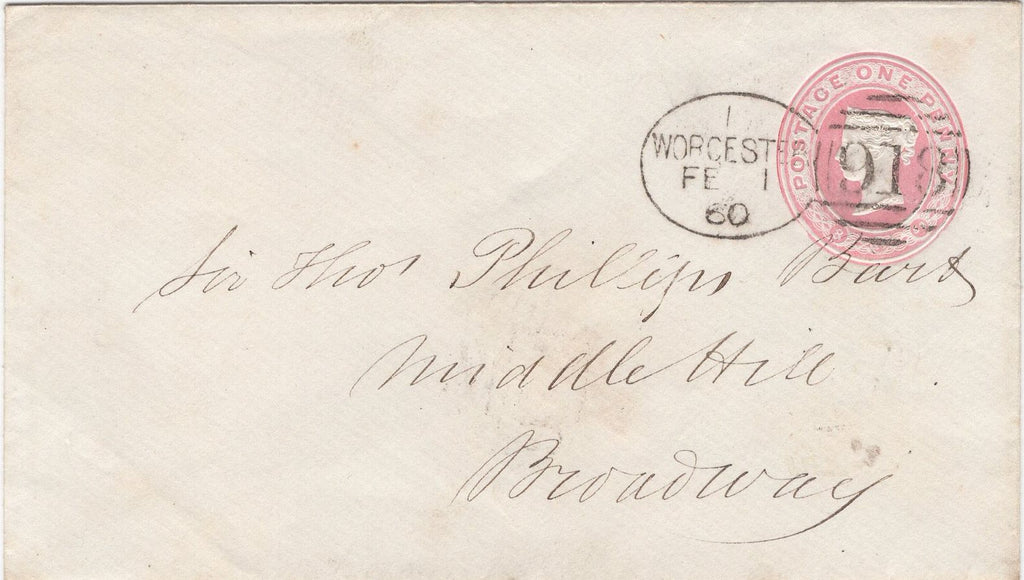 POSTAGE ONE PENNY
1
WORCESTER
FE 1
60
918
Sir Thos Phillips Bart
Middle Hill
Broadway